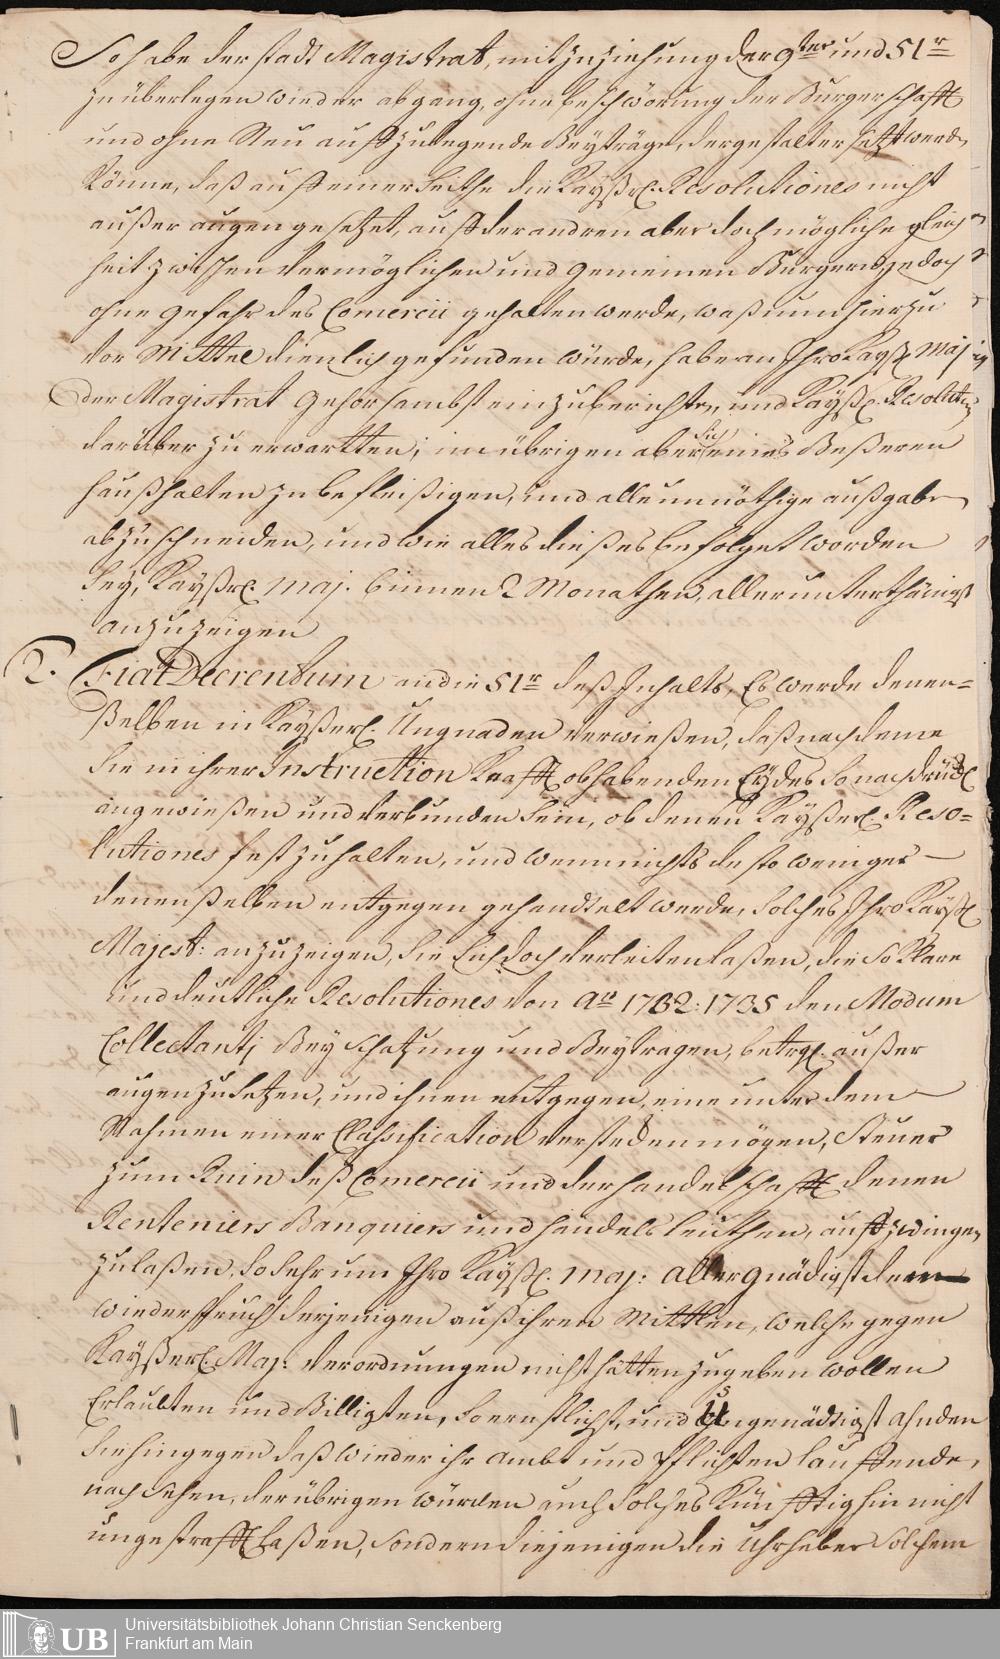 So habe der Stadt Magistrat, mit zuziehung der 9ter und 51r
zu überlegen wie der abgang, ohne beschwörung der Burgerschafft
und ohne Neu auffzulegende Beyträge, dergestalt ersetzt werden
könne, daß auff einer Seithe die Kayßrl. Resolutiones nicht
außer augen gesetzet, auff der andren aber doch mögliche gleich
heit zwischen Vermöglichen und gemeinen Burgern, jedoch
ohne gefahr des Comercii gehalten werde, waß nun hierzu
vor Mittel dienlich gefunden würde, habe an Ihro Kayßl. Maj.
der Magistrat gehorsambst einzuberichten, und Kayßl. Resolution
darüber zu erwartten; im übrigen aber sich eines Beßeren
haußhalten zu befleißigen, und alle unnöthige außgaben
abzuschneiden, und wie alles dießes befolget worden
sey, Kayßrl. Maj. binnen 2 Monathen, allerunterthänigst
anzuzeigen
2. Fiat Decretum an die 51r deß Inhalts, Es werde denen=
ßelben in Kayßerl. Ungnaden verwießen, daß nachdeme
Sie in ihrer Instruction Krafft obhabenden Eydes so nachdrückl
angewießen und verbunden sein, ob denen Kayßerl. Reso=
lutiones fest zuhalten, und wenn nichts desto weniger
denenßelben entgegen gehandtelt werde, solches Ihro Kayßl
Majest: anzuzeigen, sie sich doch verleiten laßen, die so klare
und deutliche Resolutiones von Ao 1732: 1735 den Modum
Collectandi bey Schatzung und Beytragen, betrefl. außer
augen zu setzen, und ihnen entgegen, eine unter dem
Nahmen einer Classification verstecken mögen, Steuer
zum Ruin deß Comercii und der handelschafft denen
Renteniers Banquiers und handelsleuthen, auffzwingen
zu laßen, so sehr nun Ihro Kayßl. Maj: allergnädigst den
wiederspruch derjenigen auß ihren Mitteln, welche gegen
Kayßerl. Maj: Verordnungen nicht hätten zugeben wollen
Erlaubten und Billigten, so ernstlichst, und Ungenädigst ahnden
sie hingegen daß wieder ihr Ambt und Pflichten lauffende,
nachsehen, der übrigen würden auch solches künfftighin nicht
ungestrafft laßen, sondern diejenigen die Uhrheber solchem
Universitätsbibliothek Johann Christian Senckenberg
Frankfurt am Main
UB